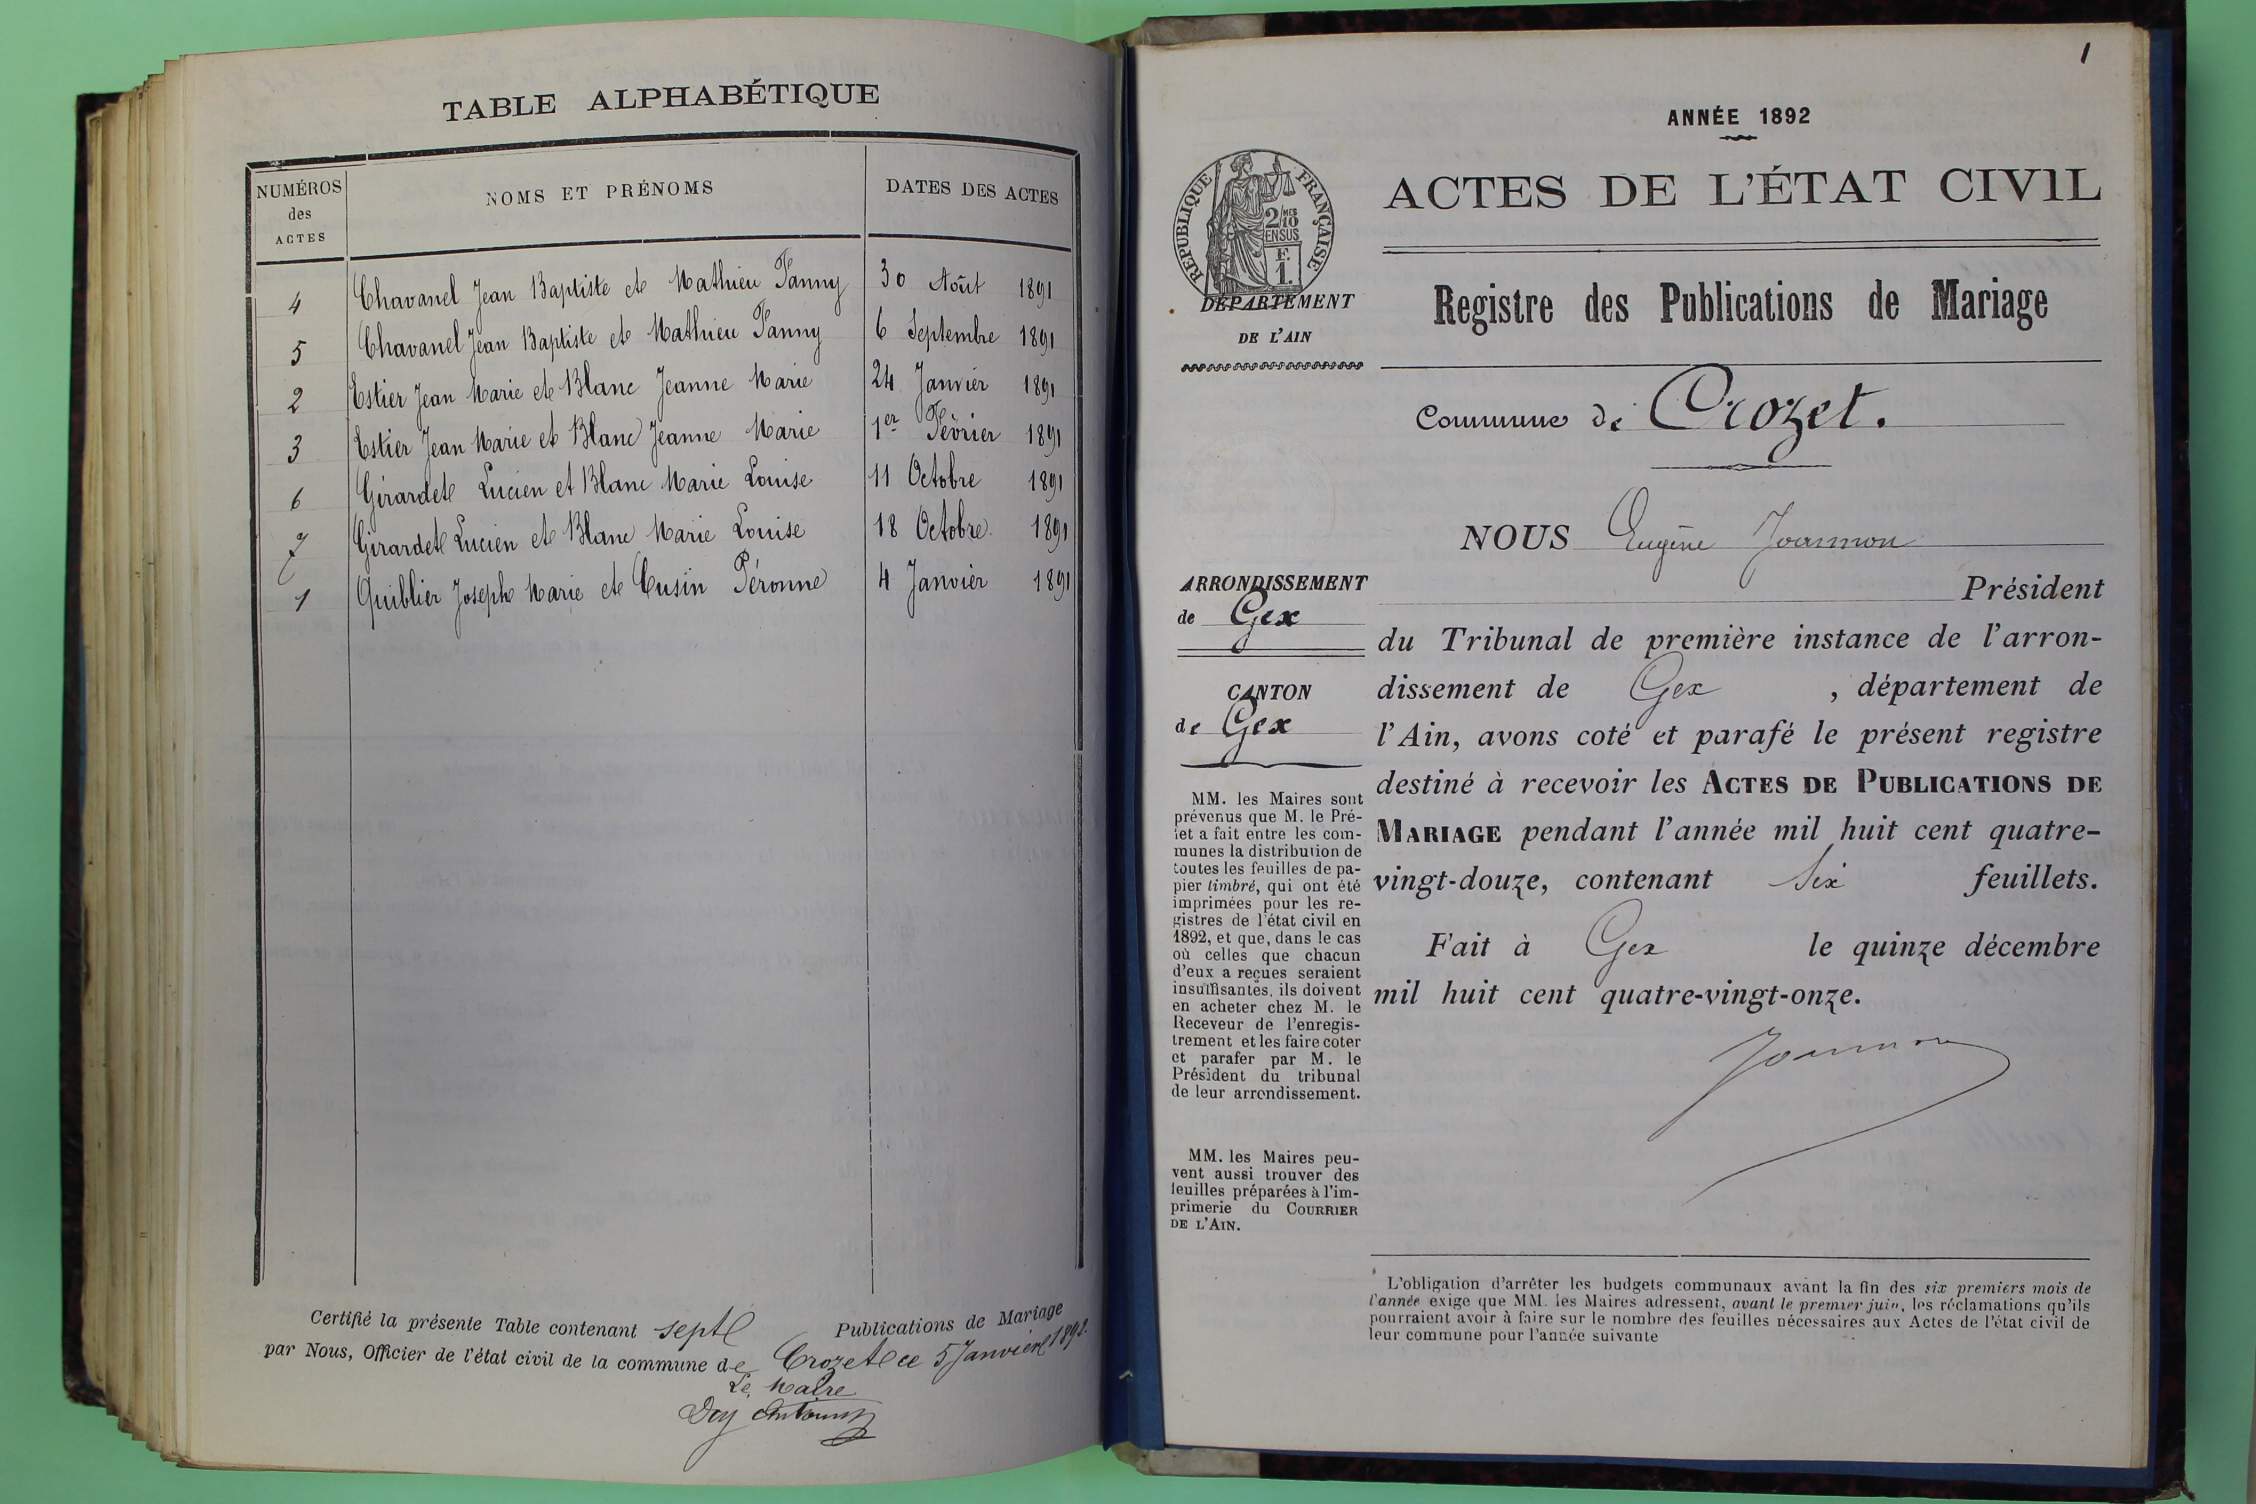 TABLE ALPHABÉTIQUE
NUMÉROS
des
ACTES
NOMS ET PRÉNOMS
DATES DES ACTES
4 Chavanel Jean Baptiste et Mathieu Fanny 30 Août 1891
5 Chavanel Jean Baptiste et Mathieu Fanny 6 Septembre 1891
2 Estier Jean Marie et Blanc Jeanne Marie 24 Janvier 1891
3 Estier Jean Marie et Blanc Jeanne Marie 1er Février 1891
6 Girardet Lucien et Blanc Marie Louise 11 Octobre 1891
7 Girardet Lucien et Blanc Marie Louise 18 Octobre 1891
1 Quiblier Joseph Marie et Cusin Péronne 4 Janvier 1891
Certifié la présente Table contenant sept Publications de Mariage
par Nous, Officier de l'état civil de la commune de Crozet ce 5 Janvier 1892.
Le Maire
1
ANNÉE 1892
RÉPUBLIQUE FRANÇAISE
2/10
MES
EN SUS
F.
1.
ACTES DE L'ÉTAT CIVIL
Registre des Publications de Mariage
DÉPARTEMENT
DE L'AIN
Commune de Crozet.
NOUS Eugène Joannon
Président
du Tribunal de première instance de l'arron-
dissement de Gex, département de
l'Ain, avons coté et parafé le présent registre
destiné à recevoir les ACTES DE PUBLICATIONS DE
MARIAGE pendant l'année mil huit cent quatre-
vingt-douze, contenant Six feuillets.
Fait à Gex le quinze décembre
mil huit cent quatre-vingt-onze.
Joannon
ARRONDISSEMENT
de Gex
CANTON
de Gex
MM. les Maires sont
prévenus que M. le Pré-
fet a fait entre les com-
munes la distribution de
toutes les feuilles de pa-
pier timbré, qui ont été
imprimées pour les re-
gistres de l'état civil en
1892, et que, dans le cas
où celles que chacun
d'eux a reçues seraient
insuffisantes, ils doivent
en acheter chez M. le
Receveur de l'enregis-
trement et les faire coter
et parafer par M. le
Président du tribunal
de leur arrondissement.
MM. les Maires peu-
vent aussi trouver des
feuilles préparées à l'im-
primerie du COURRIER
DE L'AIN.
L'obligation d'arrêter les budgets communaux avant la fin des six premiers mois de
l'année exige que MM. les Maires adressent, avant le premier juin, les réclamations qu'ils
pourraient avoir à faire sur le nombre des feuilles nécessaires aux Actes de l'état civil de
leur commune pour l'année suivante